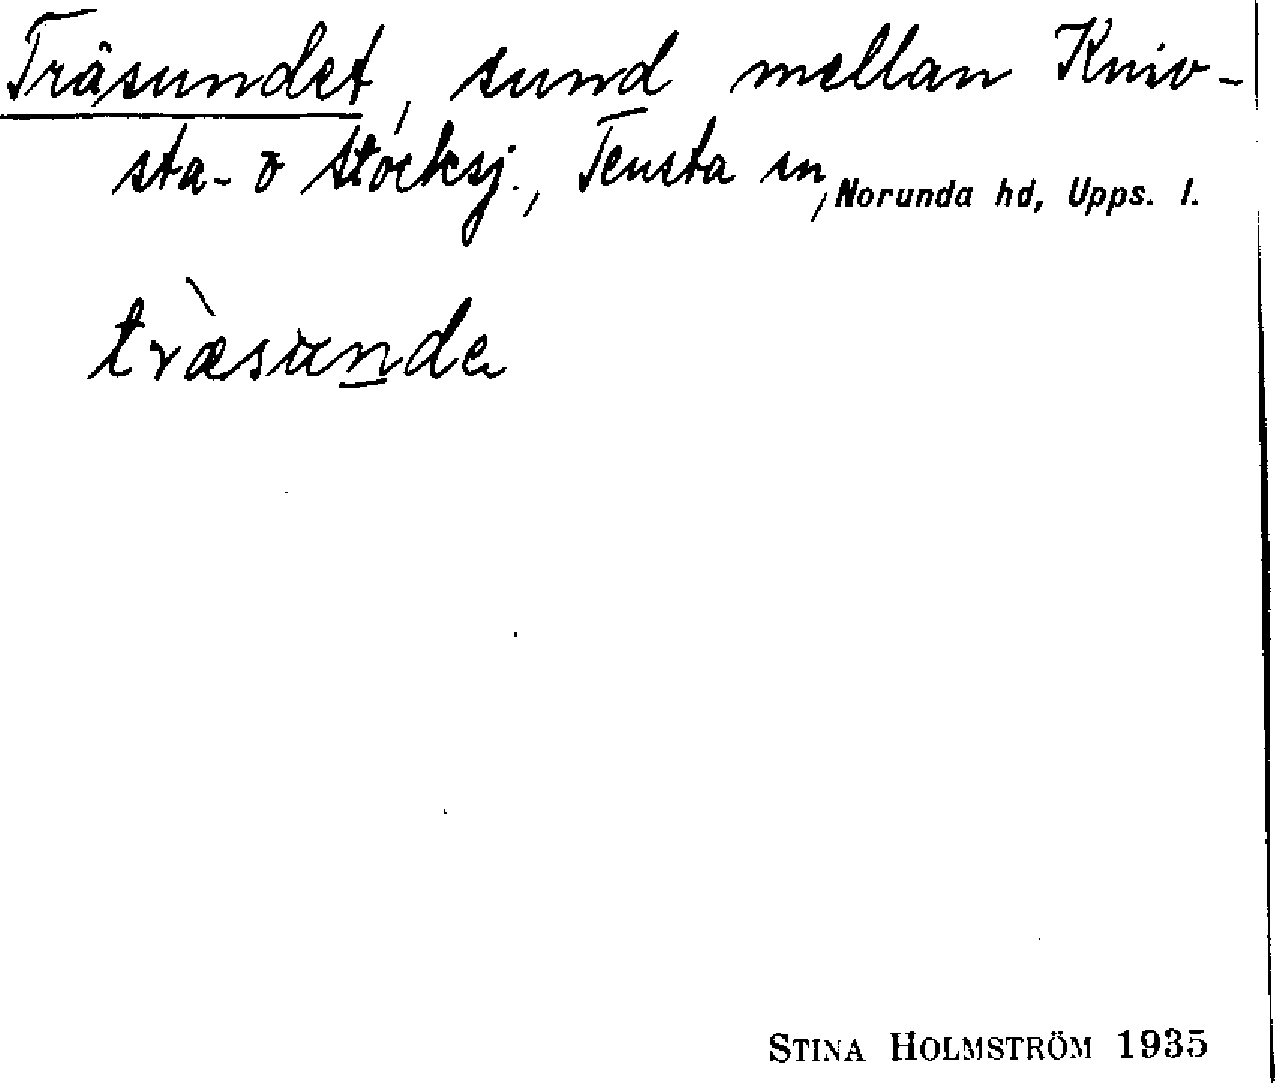 Träsundet, sund mellan Kniv-
sta- o Stocksj., Tensta sn, Norunda hd, Upps. l.
træ̀sunde
STINA HOLMSTRÖM 1935